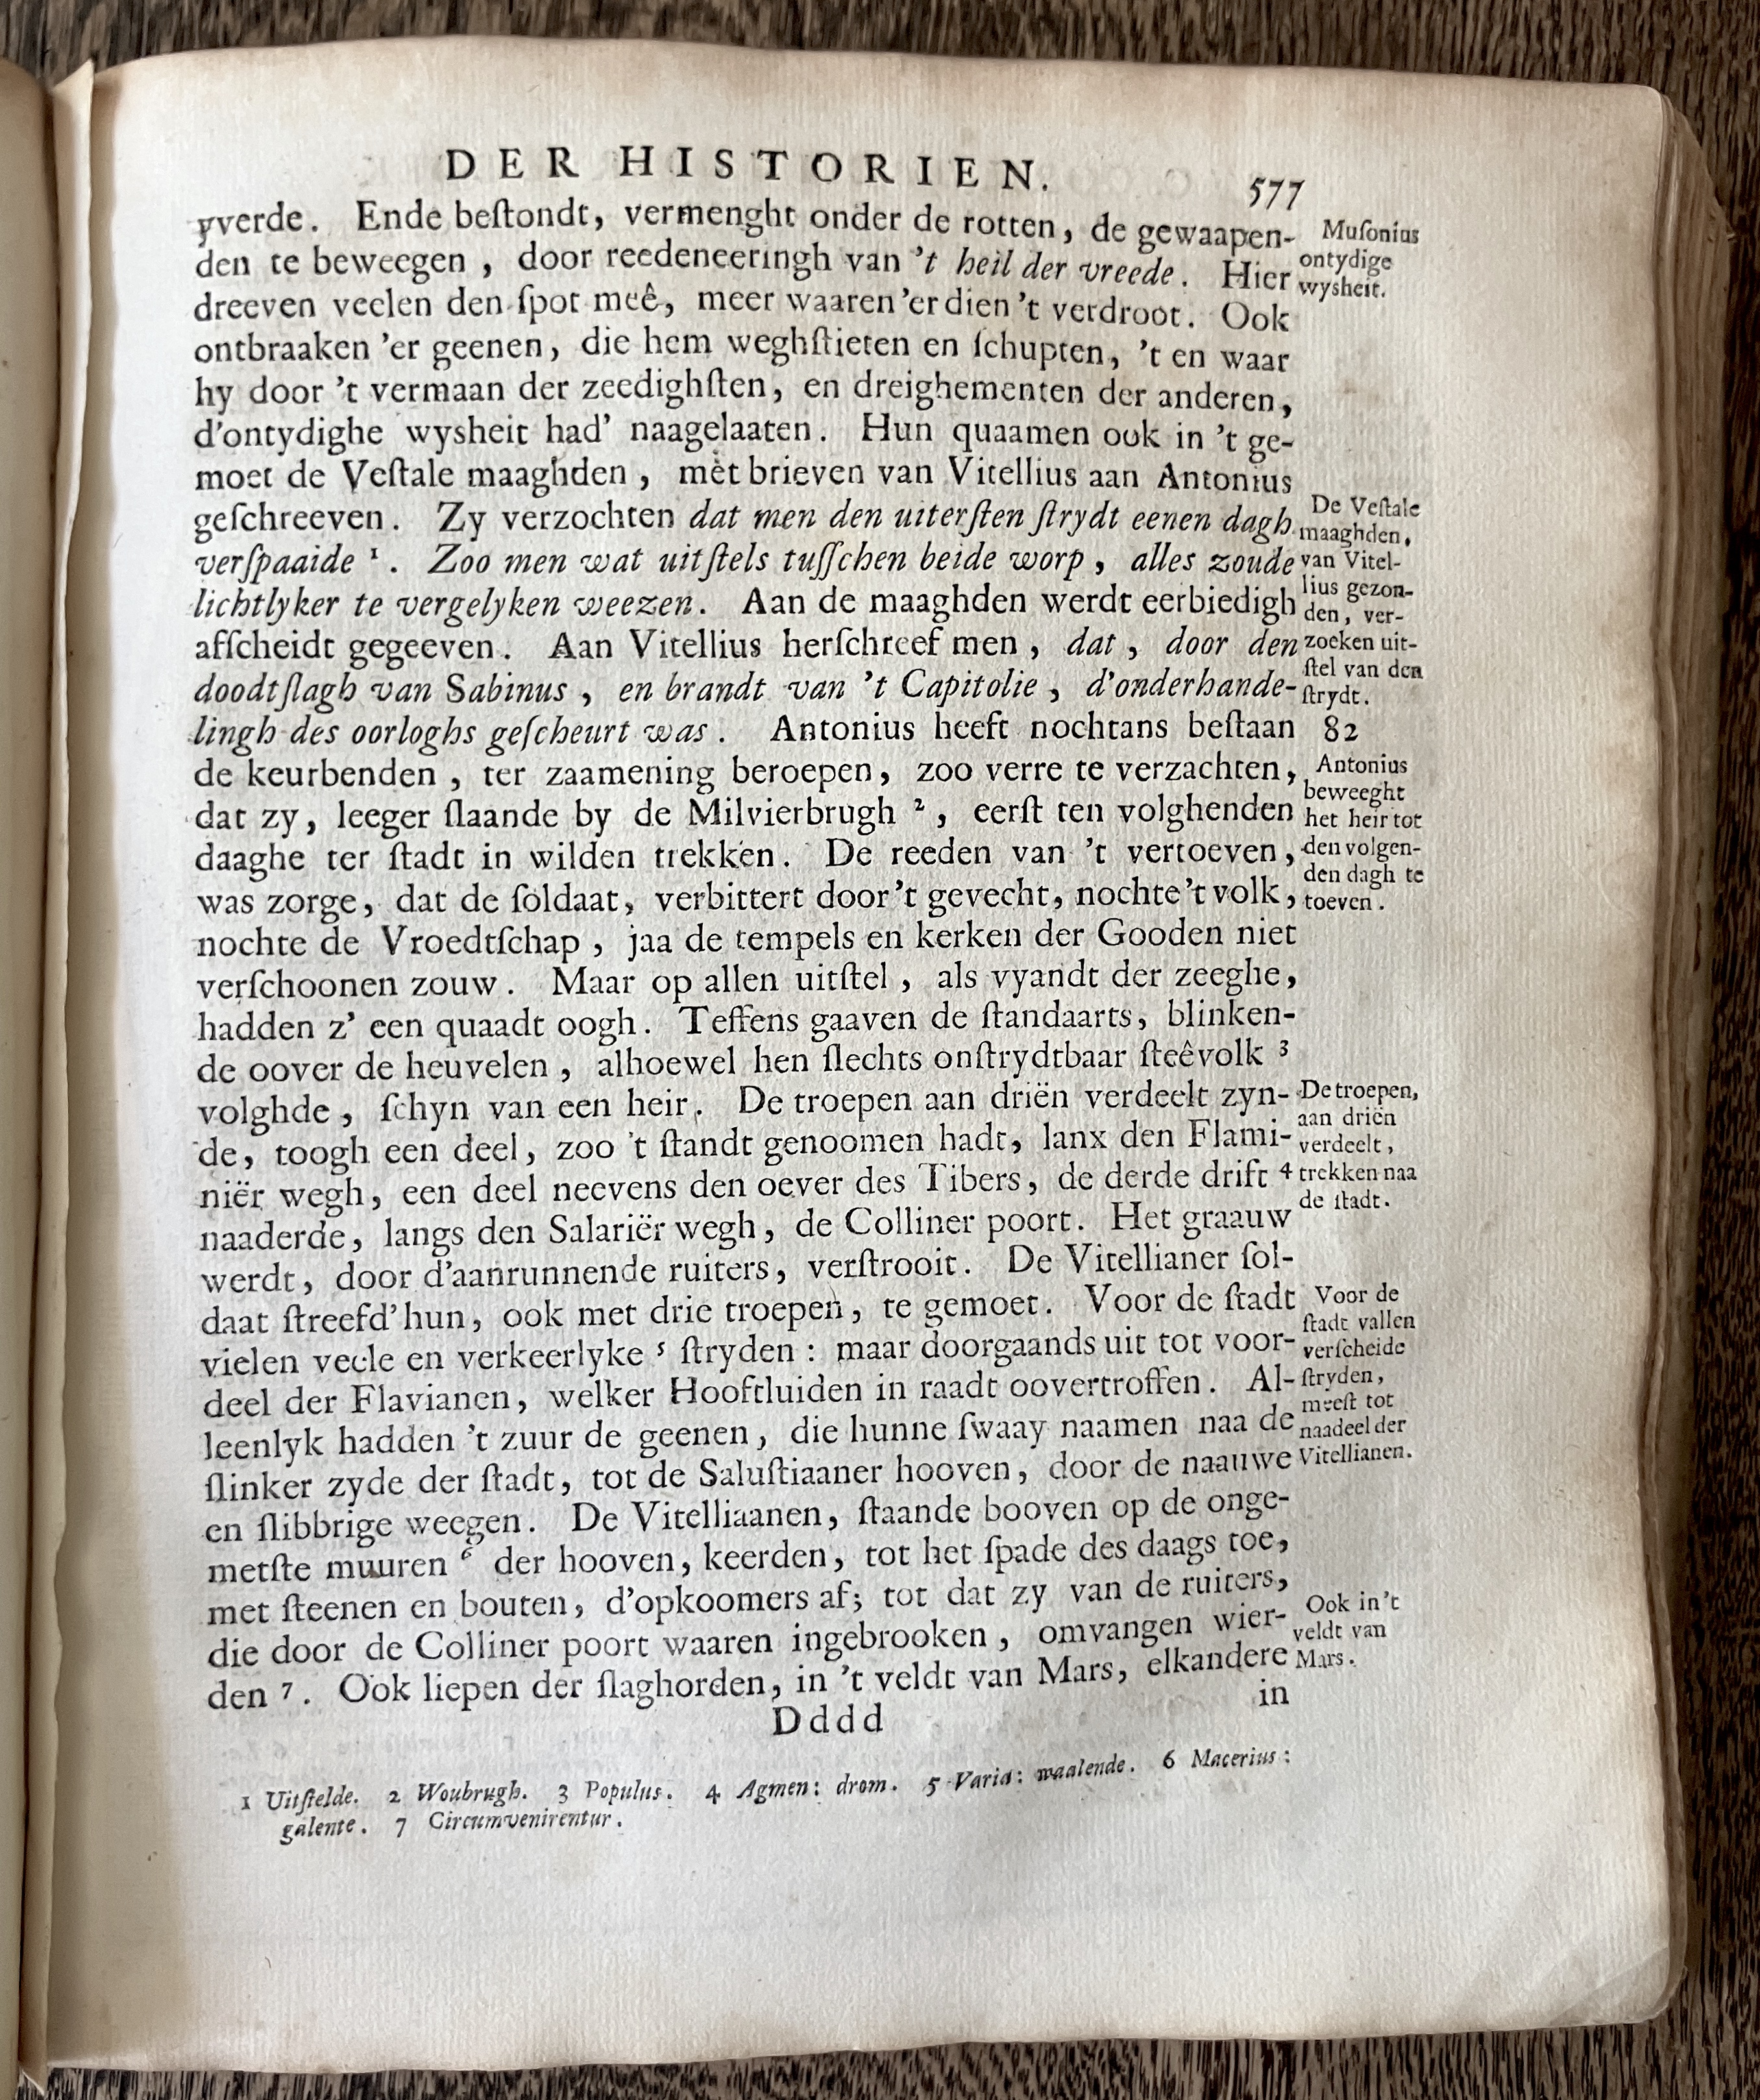 DER HISTORIEN.
577
yverde. Ende beſtondt, vermenght onder de rotten, de gewaapen-
den te beweegen, door reedeneeringh van 't heil der vreede. Hier
dreeven veelen den ſpot meê, meer waaren 'er dien 't verdroot. Ook
ontbraaken 'er geenen, die hem weghſtieten en ſchupten, 't en waar
hy door 't vermaan der zeedighſten, en dreighementen der anderen,
d'ontydighe wysheit had' naagelaaten. Hun quaamen ook in 't ge-
moet de Veſtale maaghden, met brieven van Vitellius aan Antonius
geſchreeven. Zy verzochten dat men den uiterſten ſtrydt eenen dagh
verſpaaide 1. Zoo men wat uitſtels tuſſchen beide worp, alles zoude
lichtlyker te vergelyken weezen. Aan de maaghden werdt eerbiedigh
afſcheidt gegeeven. Aan Vitellius herſchreef men, dat, door den
doodtſlagh van Sabinus, en brandt van 't Capitolie, d'onderhande-
lingh des oorloghs geſcheurt was. Antonius heeft nochtans beſtaan
de keurbenden, ter zaamening beroepen, zoo verre te verzachten,
dat zy, leeger ſlaande by de Milvierbrugh 2, eerſt ten volghenden
daaghe ter ſtadt in wilden trekken. De reeden van 't vertoeven,
was zorge, dat de ſoldaat, verbittert door 't gevecht, nochte 't volk,
nochte de Vroedtſchap, jaa de tempels en kerken der Gooden niet
verſchoonen zouw. Maar op allen uitſtel, als vyandt der zeeghe,
hadden z' een quaadt oogh. Teffens gaaven de ſtandaarts, blinken-
de oover de heuvelen, alhoewel hen ſlechts onſtrydtbaar ſteêvolk 3
volghde, ſchyn van een heir. De troepen aan driën verdeelt zyn-
de, toogh een deel, zoo 't ſtandt genoomen hadt, lanx den Flami-
niër wegh, een deel neevens den oever des Tibers, de derde drift 4
naaderde, langs den Salariër wegh, de Colliner poort. Het graauw
werdt, door d'aanrunnende ruiters, verſtrooit. De Vitellianer ſol-
daat ſtreefd' hun, ook met drie troepen, te gemoet. Voor de ſtadt
vielen veele en verkeerlyke 5 ſtryden: maar doorgaands uit tot voor-
deel der Flavianen, welker Hooftluiden in raadt oovertroffen. Al-
leenlyk hadden 't zuur de geenen, die hunne ſwaay naamen naa de
ſlinker zyde der ſtadt, tot de Saluſtiaaner hooven, door de naauwe
en ſlibbrige weegen. De Vitelliaanen, ſtaande booven op de onge-
metſte muuren 6 der hooven, keerden, tot het ſpade des daags toe,
met ſteenen en bouten, d'opkoomers af; tot dat zy van de ruiters,
die door de Colliner poort waaren ingebrooken, omvangen wier-
den 7. Ook liepen der ſlaghorden, in 't veldt van Mars, elkandere
in
Dddd
Muſonius
ontydige
wysheit.
De Veſtale
maaghden,
van Vitel-
lius gezon-
den, ver-
zoeken uit-
ſtel van den
ſtrydt.
82
Antonius
beweeght
het heir tot
den volgen-
den dagh te
toeven.
De troepen,
aan driën
verdeelt,
trekken naa
de ſtadt.
Voor de
ſtadt vallen
verſcheide
ſtryden,
meeſt tot
naadeel der
Vitellianen.
Ook in 't
veldt van
Mars.
1 Uitſtelde. 2 Woubrugh. 3 Populus. 4 Agmen: drom. 5 Varia: waalende. 6 Macerius:
galente. 7 Circumvenirentur.